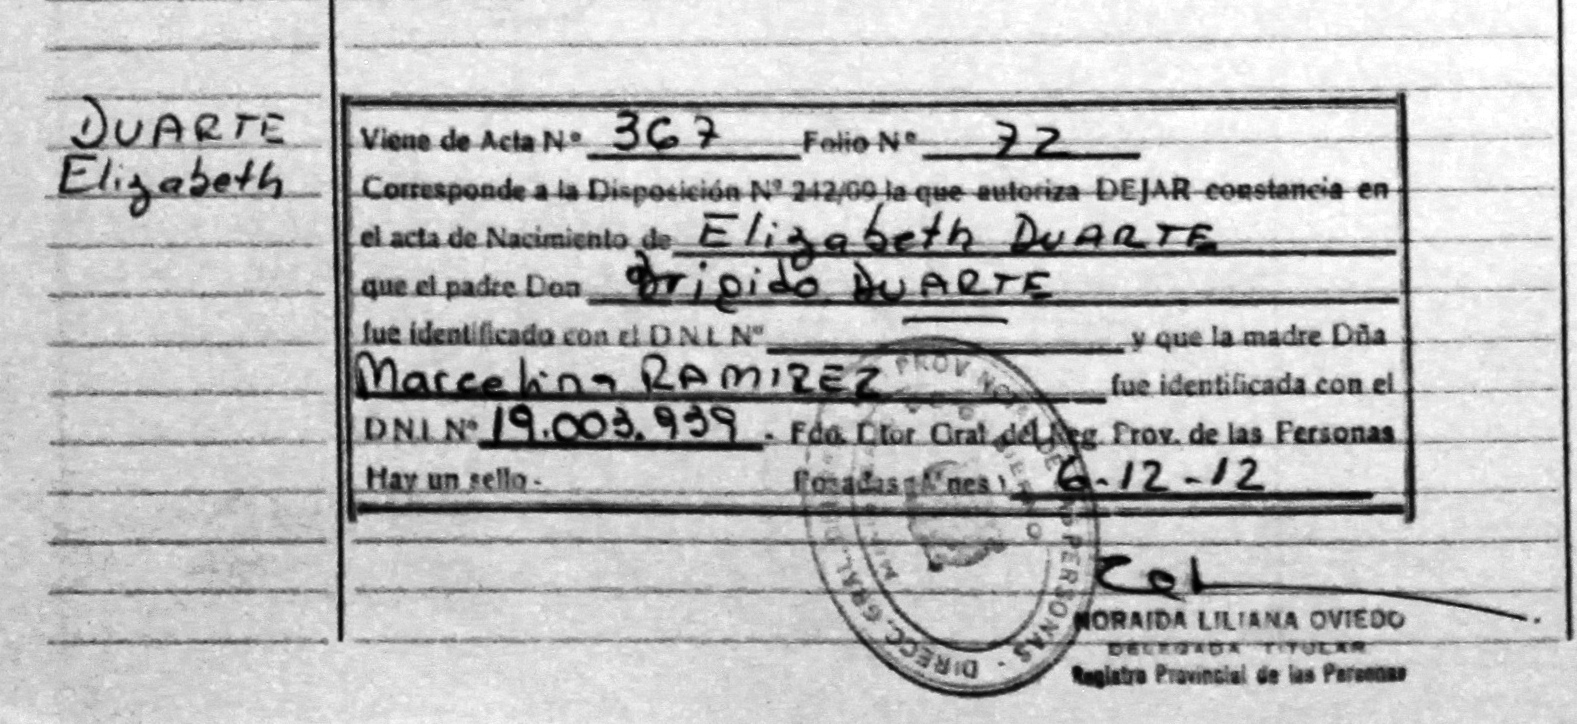 DUARTE
Elizabeth
Viene de Acta Nº 367 Folio Nº 72
Corresponde a la Disposición Nº 242/09 la que autoriza DEJAR constancia en
el acta de Nacimiento de Elizabeth DUARTE
que el padre Don Brigido DUARTE
fue identificado con el D.N.I. Nº — y que la madre Dña
Marcelina RAMIREZ fue identificada con el
D.N.I. Nº 19.003.939. Fdo. Dtor Gral. del Reg. Prov. de las Personas
Hay un sello.- Posadas, Mnes, 6-12-12
NORAIDA LILIANA OVIEDO
DELEGADA TITULAR
Registro Provincial de las Personas
DIRECC. GRAL. PROV. DE LAS PERSONAS